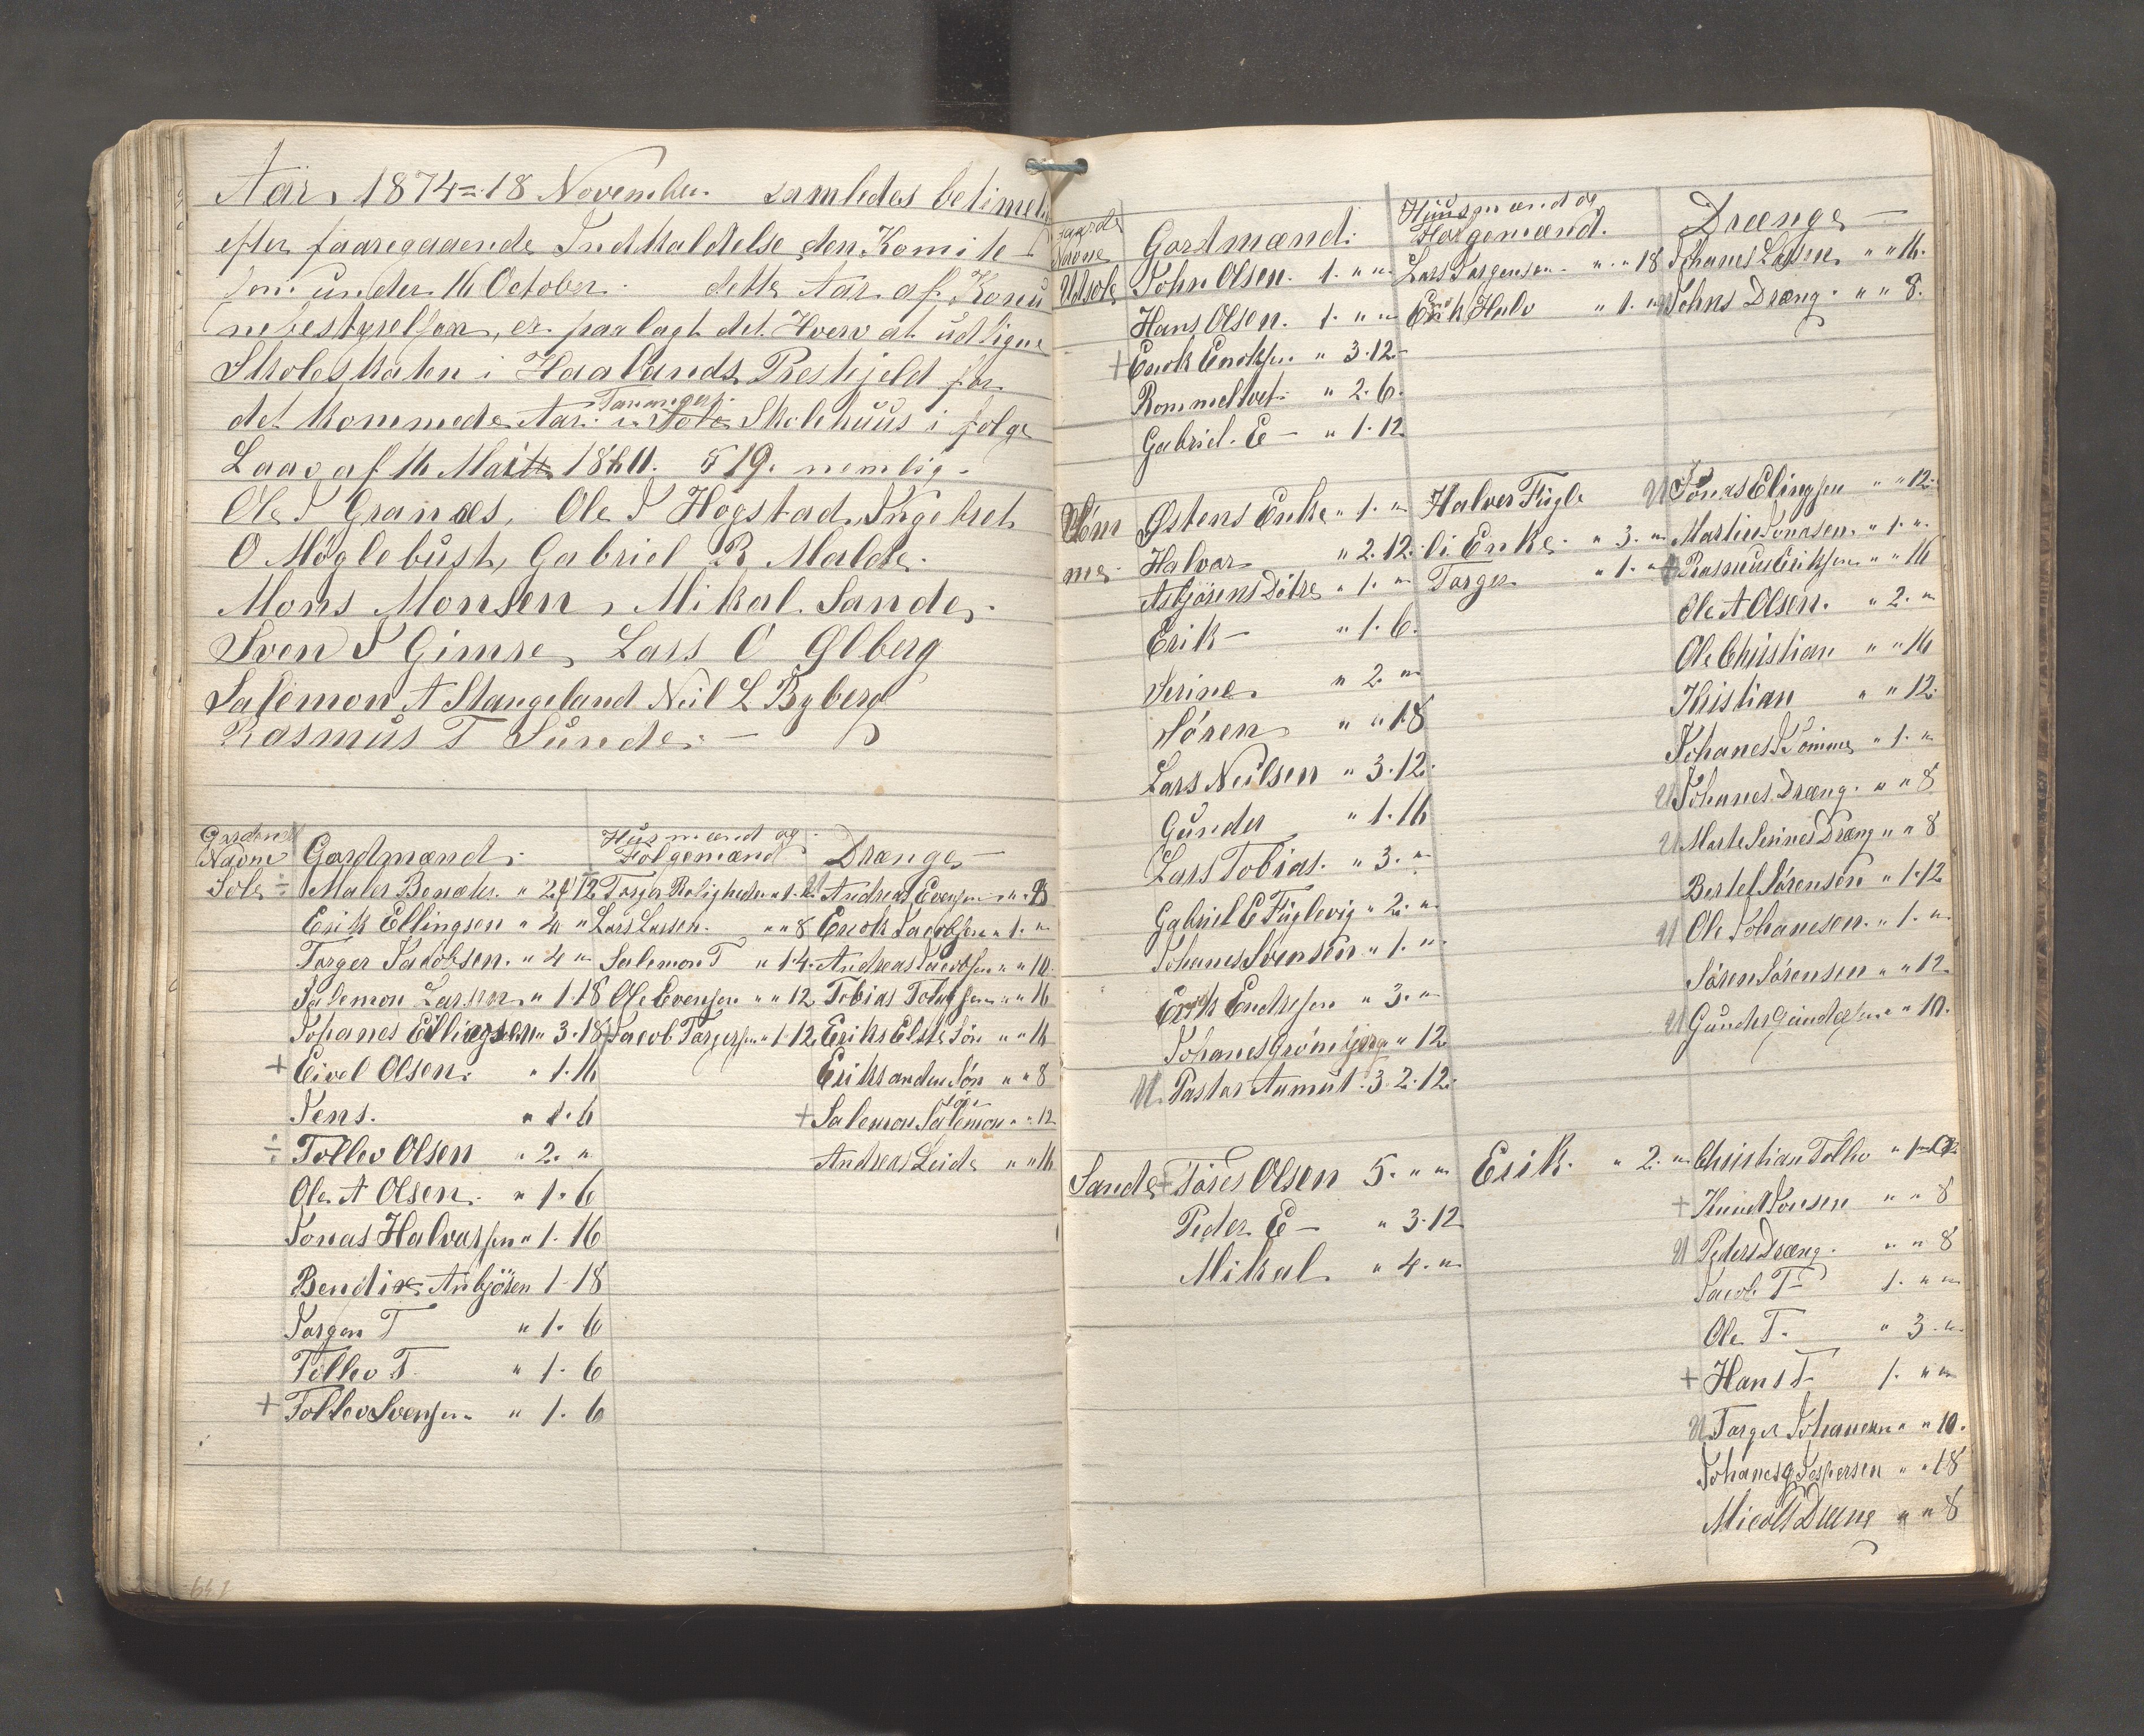 Aar 1874 = 18 November samledes betimel
efter faaregaaende Indkaldelse den Komite
som under 16 October dette Aar af Komu
nebestyrelsen, er paalagt det Hverv at udligne
Skoleskaten i Haalands Prestejeld for
det kommede Aar i Tananger Skolehuus i følge
Laav af 16 Mai 1860. § 19. nemlig.
Ole J Granæs, Ole J Høgstad, Ingebret
O Møglebust, Gabriel R Malde.
Mons Monsen, Mikal Sande.
Sven S Gimre, Lars O Ølberg
Salemon A Stangeland Neil L Byberg
Rasmus T Sunde. —
Gaardenes Navne Gardmænd. Husmænd og Følgemænd Drænge —
Sole ÷ Maler Benæke. " 2 12 Torger Roligheden " 1 " U Andreas Evensen " " 8
Erik Ellingsen " 4 " Lars Larsen. " " 8 Enok Jacobsen " 1. "
Torger Jacobsen. " 4 " Salemon T " 1.4. Andreas Jacobsen " " 10.
Salemon Larsen " 1.18 Ole Evensen " " 12 Tobias Tobiassen " " 16
Johanes Ellingsen " 3.18 Jacob Torgersen " 1.12 Eriks Elste Søn " " 16
+ Eivel Olsen. " 1.16 Eriks anden Søn " " 8
Jens. " 1.6 + Salemon Salemon søn " " 12
÷ Tollev Olsen " 2. " Andreas Leide " " 16
Ole A Olsen. " 1.6
Jonas Halvarsen " 1.16
Bendix Anbjøren 1.18
Jorgen T " 1.6
Tollev T. " 1.6
+ Tollev Svensen " 1.6
Gaards Navne Gardmænd. Huusmænd og Følgemænd. Drænge —
Utsole John Olsen. 1. " " Lars Torgersen " " 18 Johanes Larsen " " 16.
Hans Olsen. 1. " " Erik Halv " 1. " Johns Dræng. " " 8.
+ Enok Enoksen " 3.12.
Rommeltvet. " 2.6.
Gabriel. E — " 1.12
Sømme Østens Enke " 1. " Halver Fugle U Jonas Elingsen " " 12.
Halvor " 2.12. li Enke. " 3. " Martin Jonasen. " 1. "
Asbjørens Døtre " 1. " Torger " 1. " + Rasmus Eriksen " " 16
Erik — " 1.6. Ole A Olsen. " 2. "
Serine. " 2. " Ole Christian " " 16
Søren " " 18 Kristian " " 12.
Lars Neilsen " 3.12. Johanes Sømme " 1. "
Gunder " 1.16 U Johanes Dræng. " " 8
Lars Tobias. " 3. " U Marte Serines Dræng " " 8
Gabriel E Fuglevig " 2. " Bertel Sørensen " 1.12
Johanes Svensen " 1. " U Ole Johanesen. " 1. "
Erik Endresen " 3. " Søren Sørensen " " 12
Johanes Grønebjerg " 12 U Gunder Gundersen " " 10.
U Pastor Aamut. 3.2.12.
Sande + Tøres Olsen 5. " " Erik. " 2. " Christian Tollev " 1
Peder E — " 3.12 + Knud Jonsen " " 8
Mikal " 4. " U Peders Dræng. " " 8
Jacob T — 1. " "
Ole T. " 3. "
+ Hans T 1. " "
U Torger Johanesen " " 10.
Johanes J Jespersen " " 18
" " 8